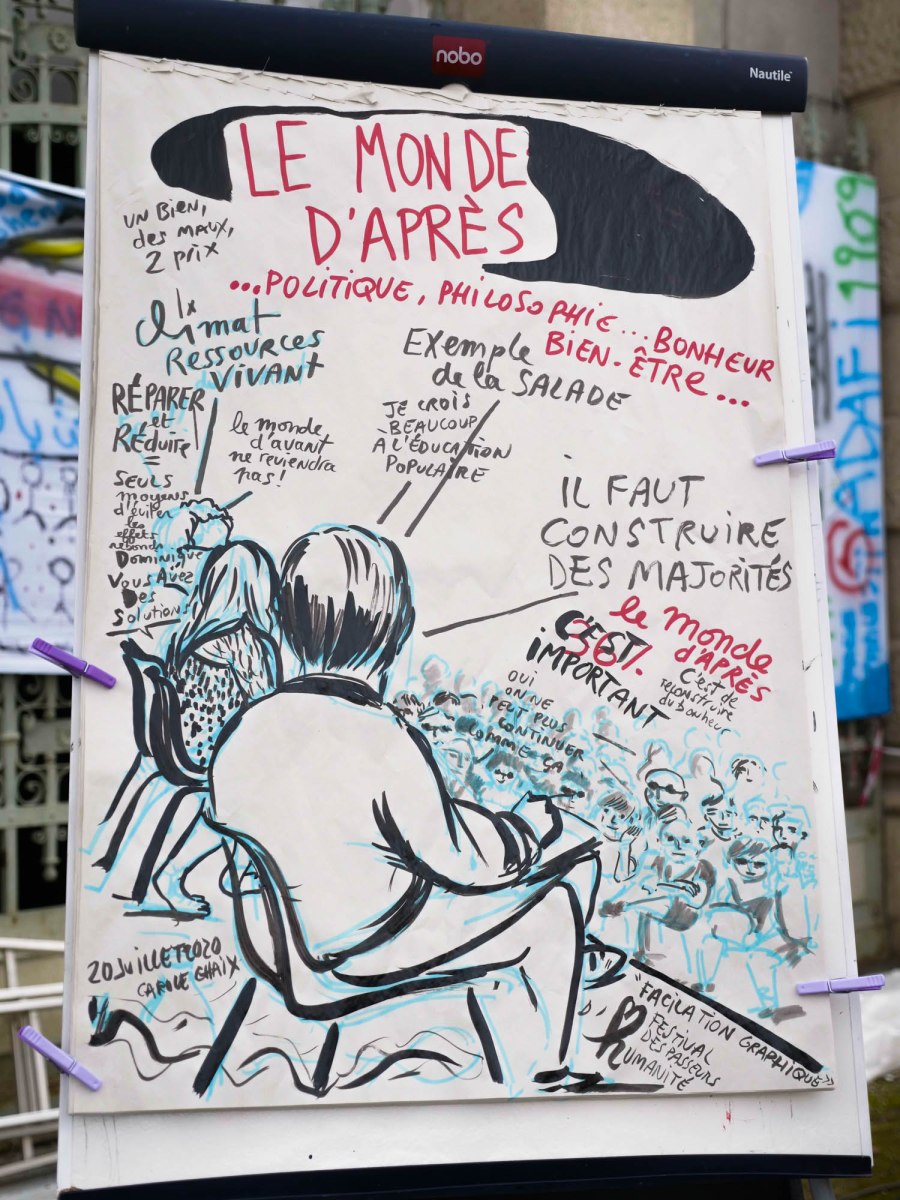 nobo
Nautile
LE MONDE
D'APRÈS
...POLITIQUE, PHILOSOPHIE... BONHEUR
BIEN-ÊTRE...
UN BIEN,
des MAUX,
2 prix
Climat
RESSOURCES
VIVANT
RÉPARER
et
Réduire
=
SEULS
moyens
d'éviter
les
effets
rebonds
Dominique
Vous Avez
Des
Solutions
le monde
d'avant
ne reviendra
pas!
Exemple
de la SALADE
JE CROIS
BEAUCOUP
À L'ÉDUCATION
POPULAIRE
IL FAUT
CONSTRUIRE
DES MAJORITÉS
36%
C'EST
IMPORTANT
le monde
d'APRÈS
C'est de
reconstruire
du bonheur
OUI
ON NE
PEUT PLUS
CONTINUER
COMME ÇA
20 JUILLET 2020
CAROLE CHAIX
"FACILATION GRAPHIQUE"
FESTIVAL
DES PASSEURS
D'humanité
GADAFI 1909